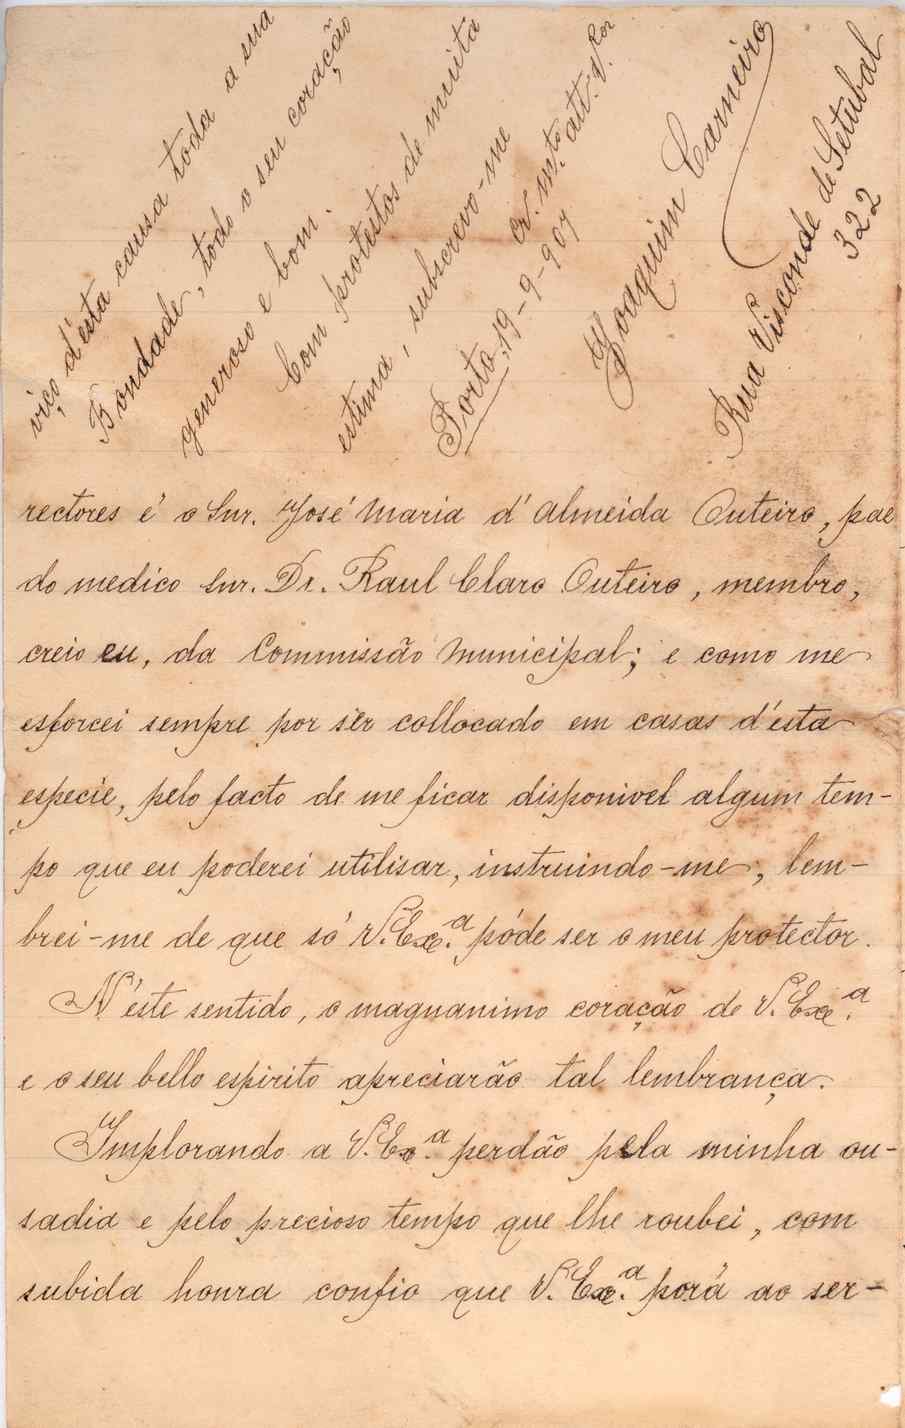 rectores é o Snr. José Maria d'Almeida Outeiro, pae
do medico Snr. Dr. Raul Claro Outeiro, membro,
creio eu, da Commissão Municipal; e como me
esforcei sempre por ser collocado em casas d'esta
especie, pelo facto de me ficar disponivel algum tem-
po que eu poderei utilisar, instruindo-me, lem-
brei-me de que só V. Exc.ª póde ser o meu protector.
N'este sentido, o magnanimo coração de V. Exc.ª
e o seu bello espirito apreciarão tal lembrança.
Implorando a V. Exc.ª perdão pela minha ou-
sadia e pelo precioso tempo que lhe roubei, com
subida honra confio que V. Exc.ª porá ao ser-
viço d'esta causa toda a sua
Bondade, todo o seu coração
generoso e bom.
Com protestos de muita
estima, subscrevo-me
Porto, 19-9-907
Cr. m.to att.º V.or
Joaquim Carneiro
Rua Visconde de Setubal
322